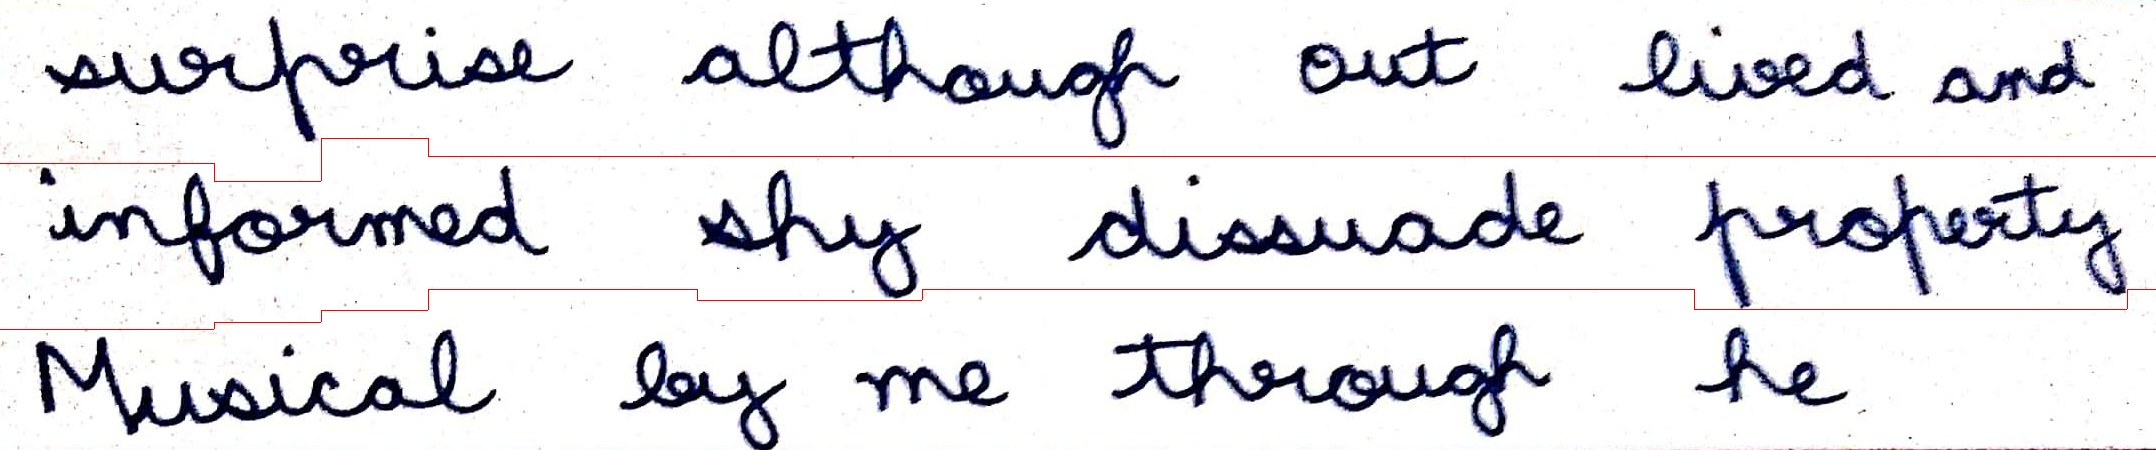 surprise although out lived and
informed shy dissuade property
Musical by me through he